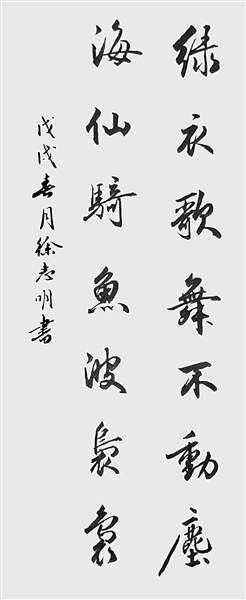 綠衣歌舞不動塵
海仙騎魚波裊裊
戊戌春月徐志明書